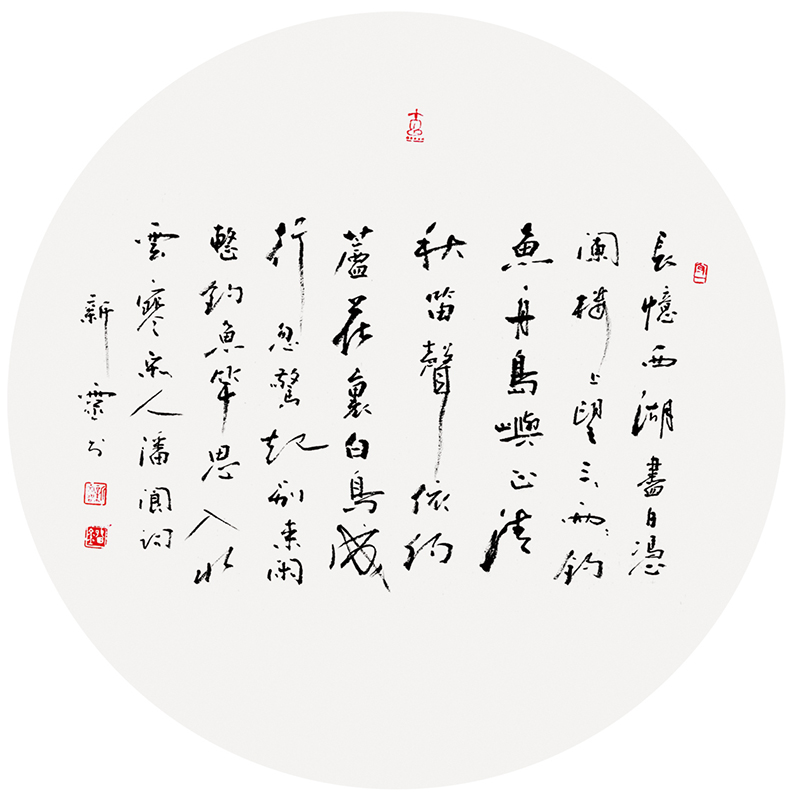 長憶西湖盡日憑
闌樓上望三々兩々釣
魚舟島嶼正清
秋笛聲依約
蘆花裏白鳥成
行忽驚起別來閑
整釣魚竿思入水
雲寒宋人潘閬詞
新靈書